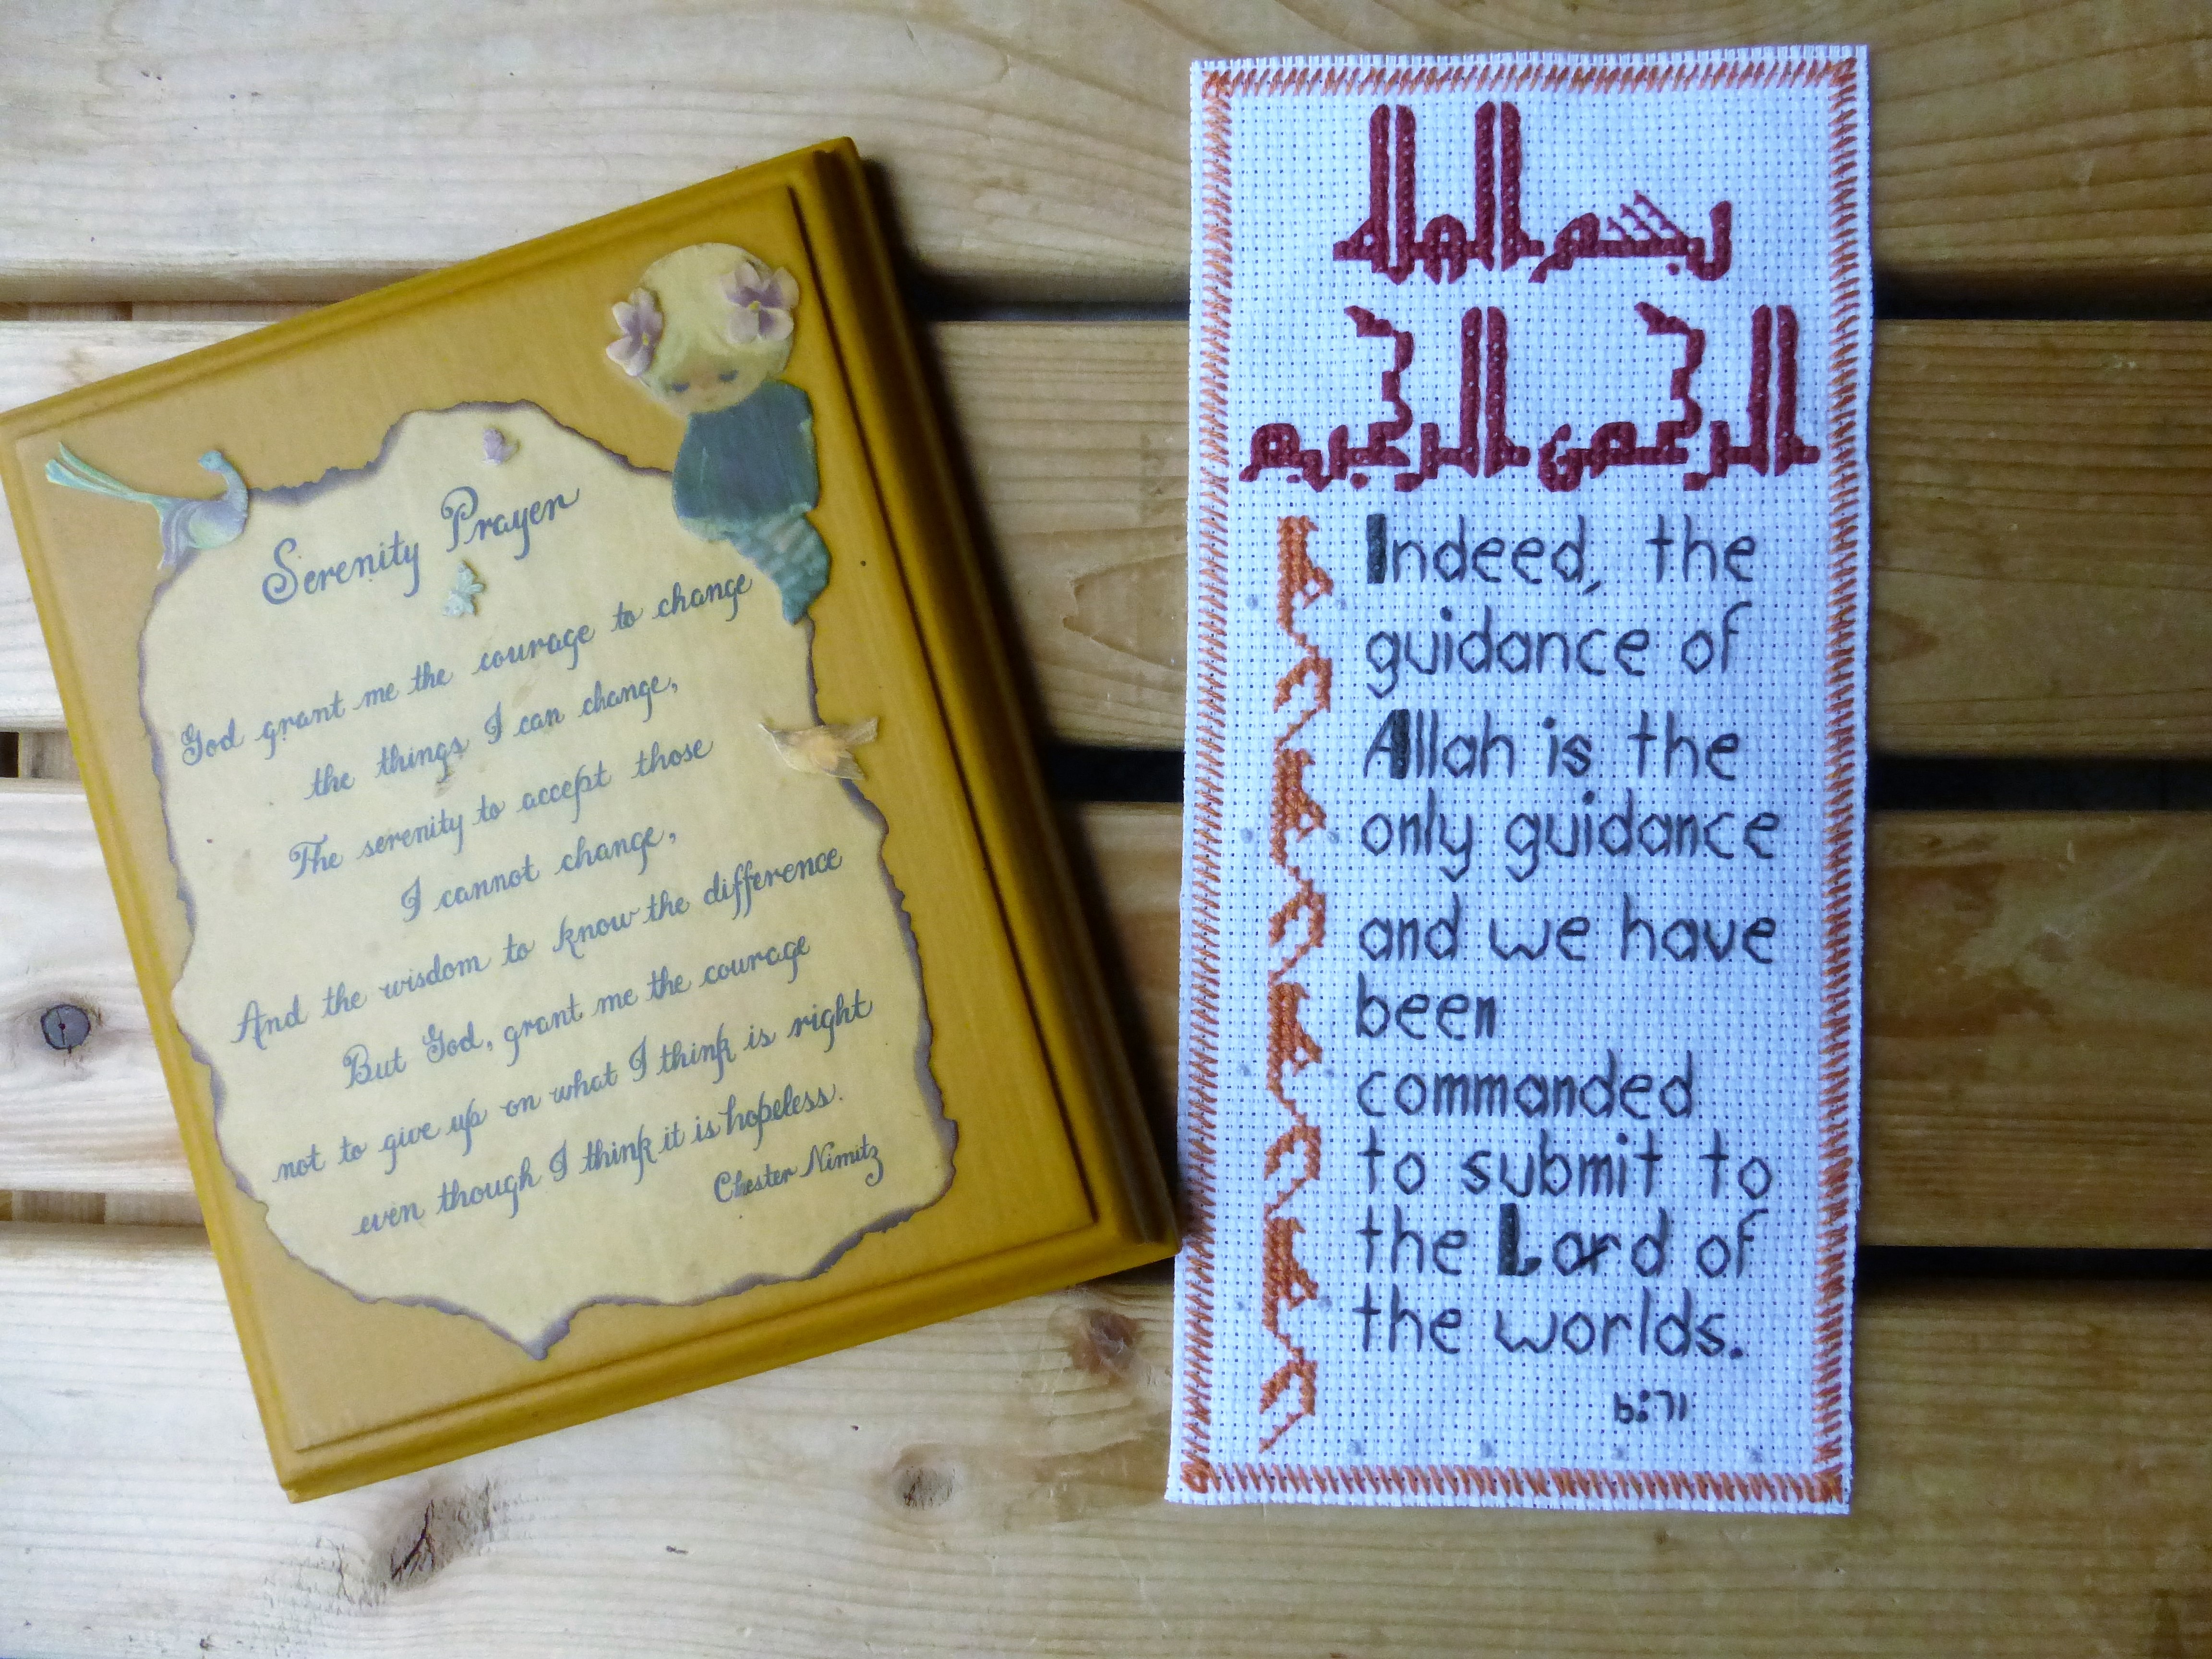 Serenity Prayer
God grant me the courage to change
the things I can change,
The serenity to accept those
I cannot change,
And the wisdom to know the difference
But God, grant me the courage
not to give up on what I think is right
even though I think it is hopeless.
Chester Nimitz
بسم الله
الرحمن الرحيم
Indeed, the
guidance of
Allah is the
only guidance
and we have
been
commanded
to submit to
the Lord of
the worlds.
6:71